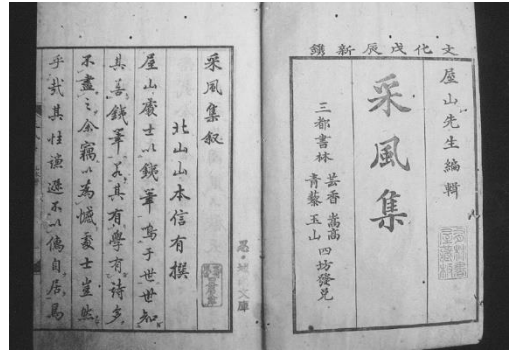 文化戊辰新鐫
屋山先生編輯
采風集
三都書林
芸香 嵩高
青藜 玉山
四坊發兌
采風集叙
北山山本信有撰
屋山處士以銕筆鳴于世世知
其善銕筆若其有學有詩多
不盡之余竊以為憾處士豈然
乎哉其性謙遜不以自居焉
文庫